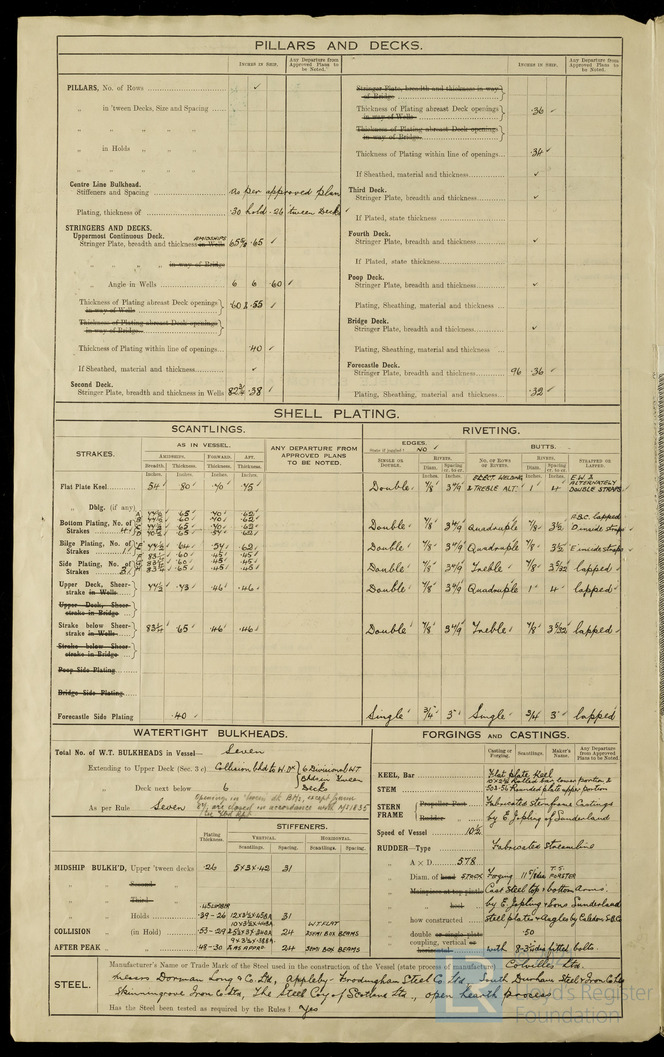 PILLARS AND DECKS.
INCHES IN SHIP.
Any Departure from Approved Plans to be Noted.
PILLARS, No. of Rows ✓
„ in 'tween Decks, Size and Spacing
„ „ „ „ „
„ in Holds „ „
„ „ „ „
Centre Line Bulkhead.
Stiffeners and Spacing as per approved plan
Plating, thickness of .30 hold .26 'tween Decks
STRINGERS AND DECKS.
Uppermost Continuous Deck.
Stringer Plate, breadth and thickness in Wells AMIDSHIPS .65 ✓
„ „ „ „ in way of Bridge
„ Angle in Wells 6 6 .60 ✓
Thickness of Plating abreast Deck openings in way of Wells .60 & .55 ✓
Thickness of Plating abreast Deck openings in way of Bridge
Thickness of Plating within line of openings .40 ✓
If Sheathed, material and thickness ✓
Second Deck.
Stringer Plate, breadth and thickness in Wells 82¾ .38 ✓
INCHES IN SHIP.
Any Departure from Approved Plans to be Noted.
Stringer Plate, breadth and thickness in way of Bridge
Thickness of Plating abreast Deck openings in way of Wells .36 ✓
Thickness of Plating abreast Deck openings in way of Bridge
Thickness of Plating within line of openings .34 ✓
If Sheathed, material and thickness ✓
Third Deck.
Stringer Plate, breadth and thickness ✓
If Plated, state thickness
Fourth Deck.
Stringer Plate, breadth and thickness ✓
If Plated, state thickness
Poop Deck.
Stringer Plate, breadth and thickness ✓
Plating, Sheathing, material and thickness
Bridge Deck.
Stringer Plate, breadth and thickness ✓
Plating, Sheathing, material and thickness
Forecastle Deck.
Stringer Plate, breadth and thickness 96 .36 ✓
Plating, Sheathing, material and thickness .32 ✓
SHELL PLATING.
SCANTLINGS.
RIVETING.
STRAKES.
AS IN VESSEL.
AMIDSHIPS. FORWARD. AFT.
Breadth. Thickness. Thickness. Thickness.
Inches. Inches. Inches. Inches.
ANY DEPARTURE FROM APPROVED PLANS TO BE NOTED.
EDGES.
State if joggled? NO ✓
SINGLE OR DOUBLE.
RIVETS.
Diam. Spacing cr. to cr.
BUTTS.
NO. OF ROWS OF RIVETS.
RIVETS.
Diam. Spacing cr. to cr.
STRAPPED OR LAPPED.
Flat Plate Keel 54 .80 .70 .75 Double 7/8 ELECT. WELDING & TREBLE ALT. 1 4 E.W. & ALTERNATELY DOUBLE STRAPS
„ Dblg. (if any)
Bottom Plating, No. of Strakes 4 Double 7/8 Quadruple 7/8 3½ A.B.C. lapped D inside straps
Bilge Plating, No. of Strakes 1 44½ .64 .54 .62 Double 7/8 Quadruple 7/8 3½ E inside straps
Side Plating, No. of Strakes 3 Double 7/8 Treble 7/8 lapped
Upper Deck, Sheerstrake in Wells 44½ .73 .46 .46 Double 7/8 Quadruple 1 4 lapped
Upper Deck, Sheerstrake in Bridge
Strake below Sheerstrake in Wells 83¼ .65 .46 .46 Double 7/8 Treble 7/8 lapped
Strake below Sheerstrake in Bridge
Poop Side Plating
Bridge Side Plating
Forecastle Side Plating .40 Single 3/4 3 Single 3/4 3 lapped
WATERTIGHT BULKHEADS.
Total No. of W.T. BULKHEADS in Vessel— Seven
Extending to Upper Deck (Sec. 3 c) Collision bhd to U. Dk
„ Deck next below 6
6 Divisional W.T. Bhds in Tween Decks
As per Rule Seven
Plating Thickness.
STIFFENERS.
VERTICAL. HORIZONTAL.
Scantlings. Spacing. Scantlings. Spacing.
MIDSHIP BULKH'D, Upper 'tween decks .26 5×3×.42 31
„ „ Second „
„ „ Third „
„ „ Holds .39-.26 31
COLLISION „ (in Hold) .53-.29 24 W.T. FLAT & SEMI BOX BEAMS
AFTER PEAK „ „ .48-.30 & AS APPRO. 24 SEMI BOX BEAMS
FORGINGS AND CASTINGS.
Casting or Forging. Scantlings. Maker's Name. Any Departure from Approved Plans to be Noted.
KEEL, Bar Flat plate Keel
STEM Rolled bar lower portion & Rounded plate upper portion
STERN FRAME Propeller Post Fabricated Sternframe Castings
Rudder „ by E Jopling of Sunderland
Speed of Vessel 10½
RUDDER—Type Fabricated Streamline
„ A × D 578
„ Diam. of head STOCK Forging T.S. FORSTER
„ Mainpiece at top pintle Cast Steel top & bottom Arms
„ „ heel by E. Jopling & Sons Sunderland
„ how constructed Steel plates & Angles by Caledon S.B.Co
„ double or single plate .50
„ coupling, vertical or horizontal with 8-3½ dia fitted bolts
STEEL.
Manufacturer's Name or Trade Mark of the Steel used in the construction of the Vessel (state process of manufacture) Colvilles Ltd.
Messrs Dorman Long & Co. Ltd., Appleby-Frodingham Steel Co Ltd, South Durham Steel & Iron Co Ltd,
Skinningrove Iron Co Ltd, The Steel Coy of Scotland Ltd., open hearth process
Has the Steel been tested as required by the Rules? Yes
LR
Lloyd's Register
Foundation